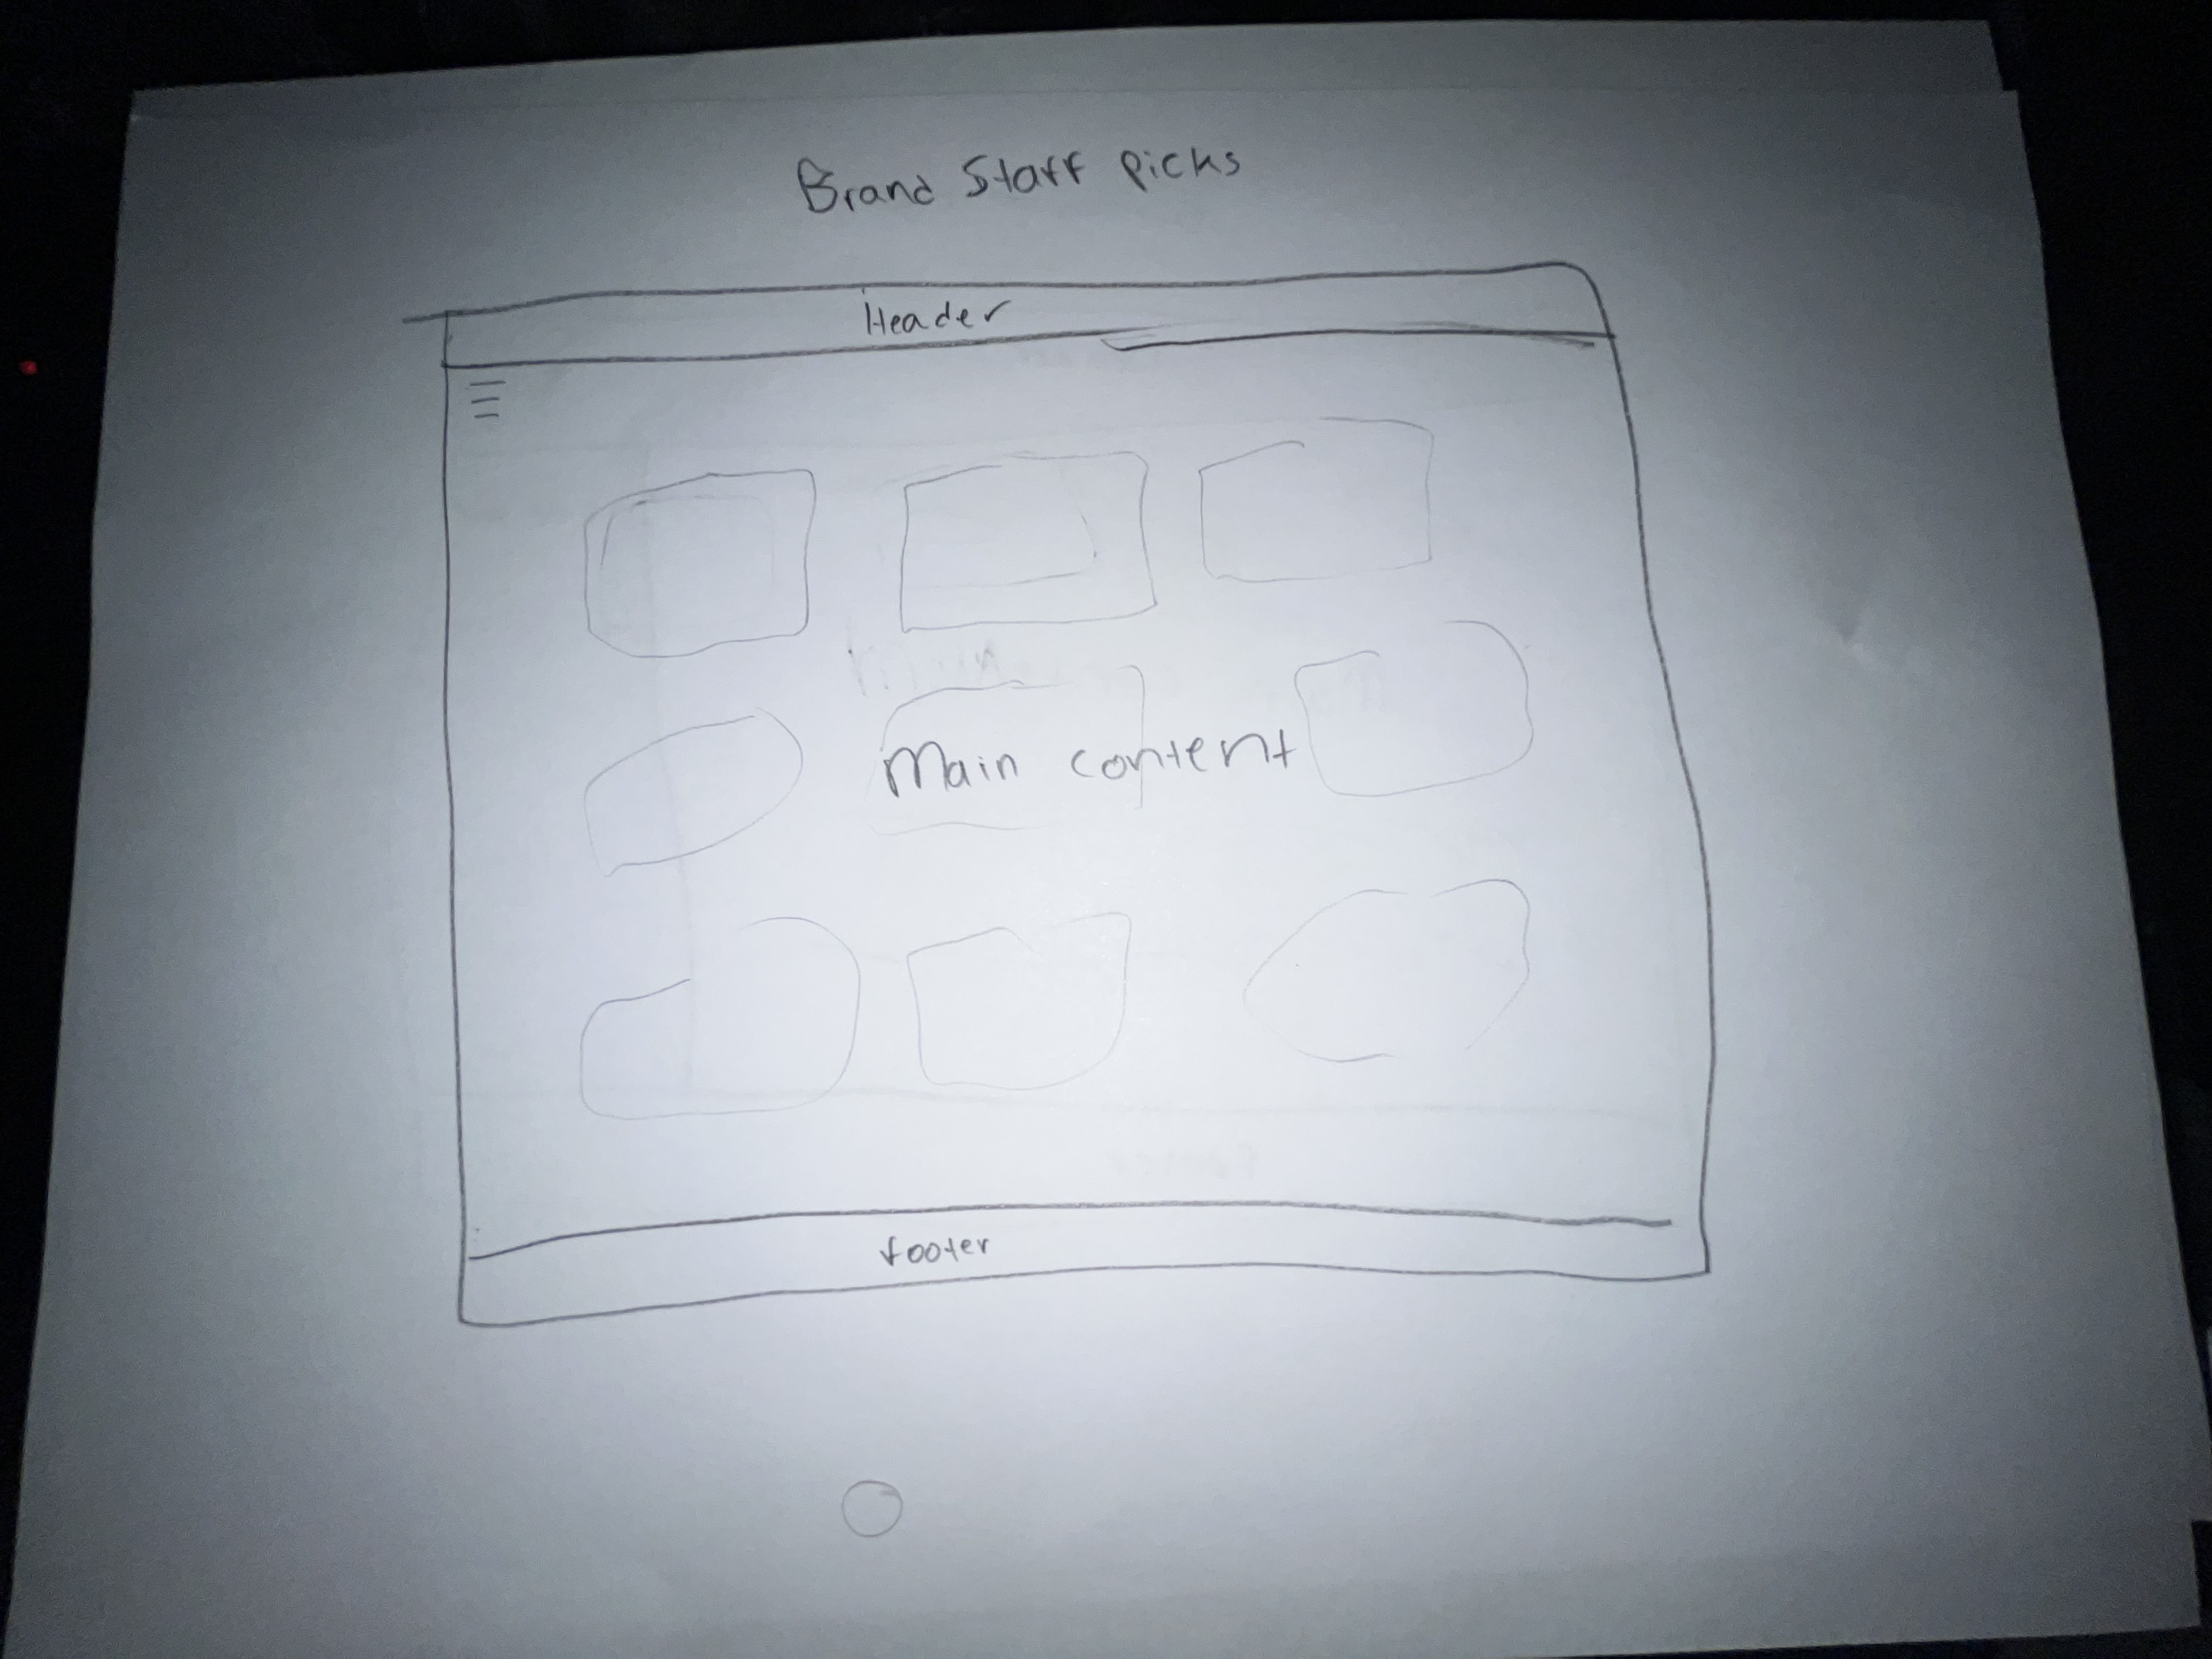 Brand Staff Picks
Header
Main content
footer